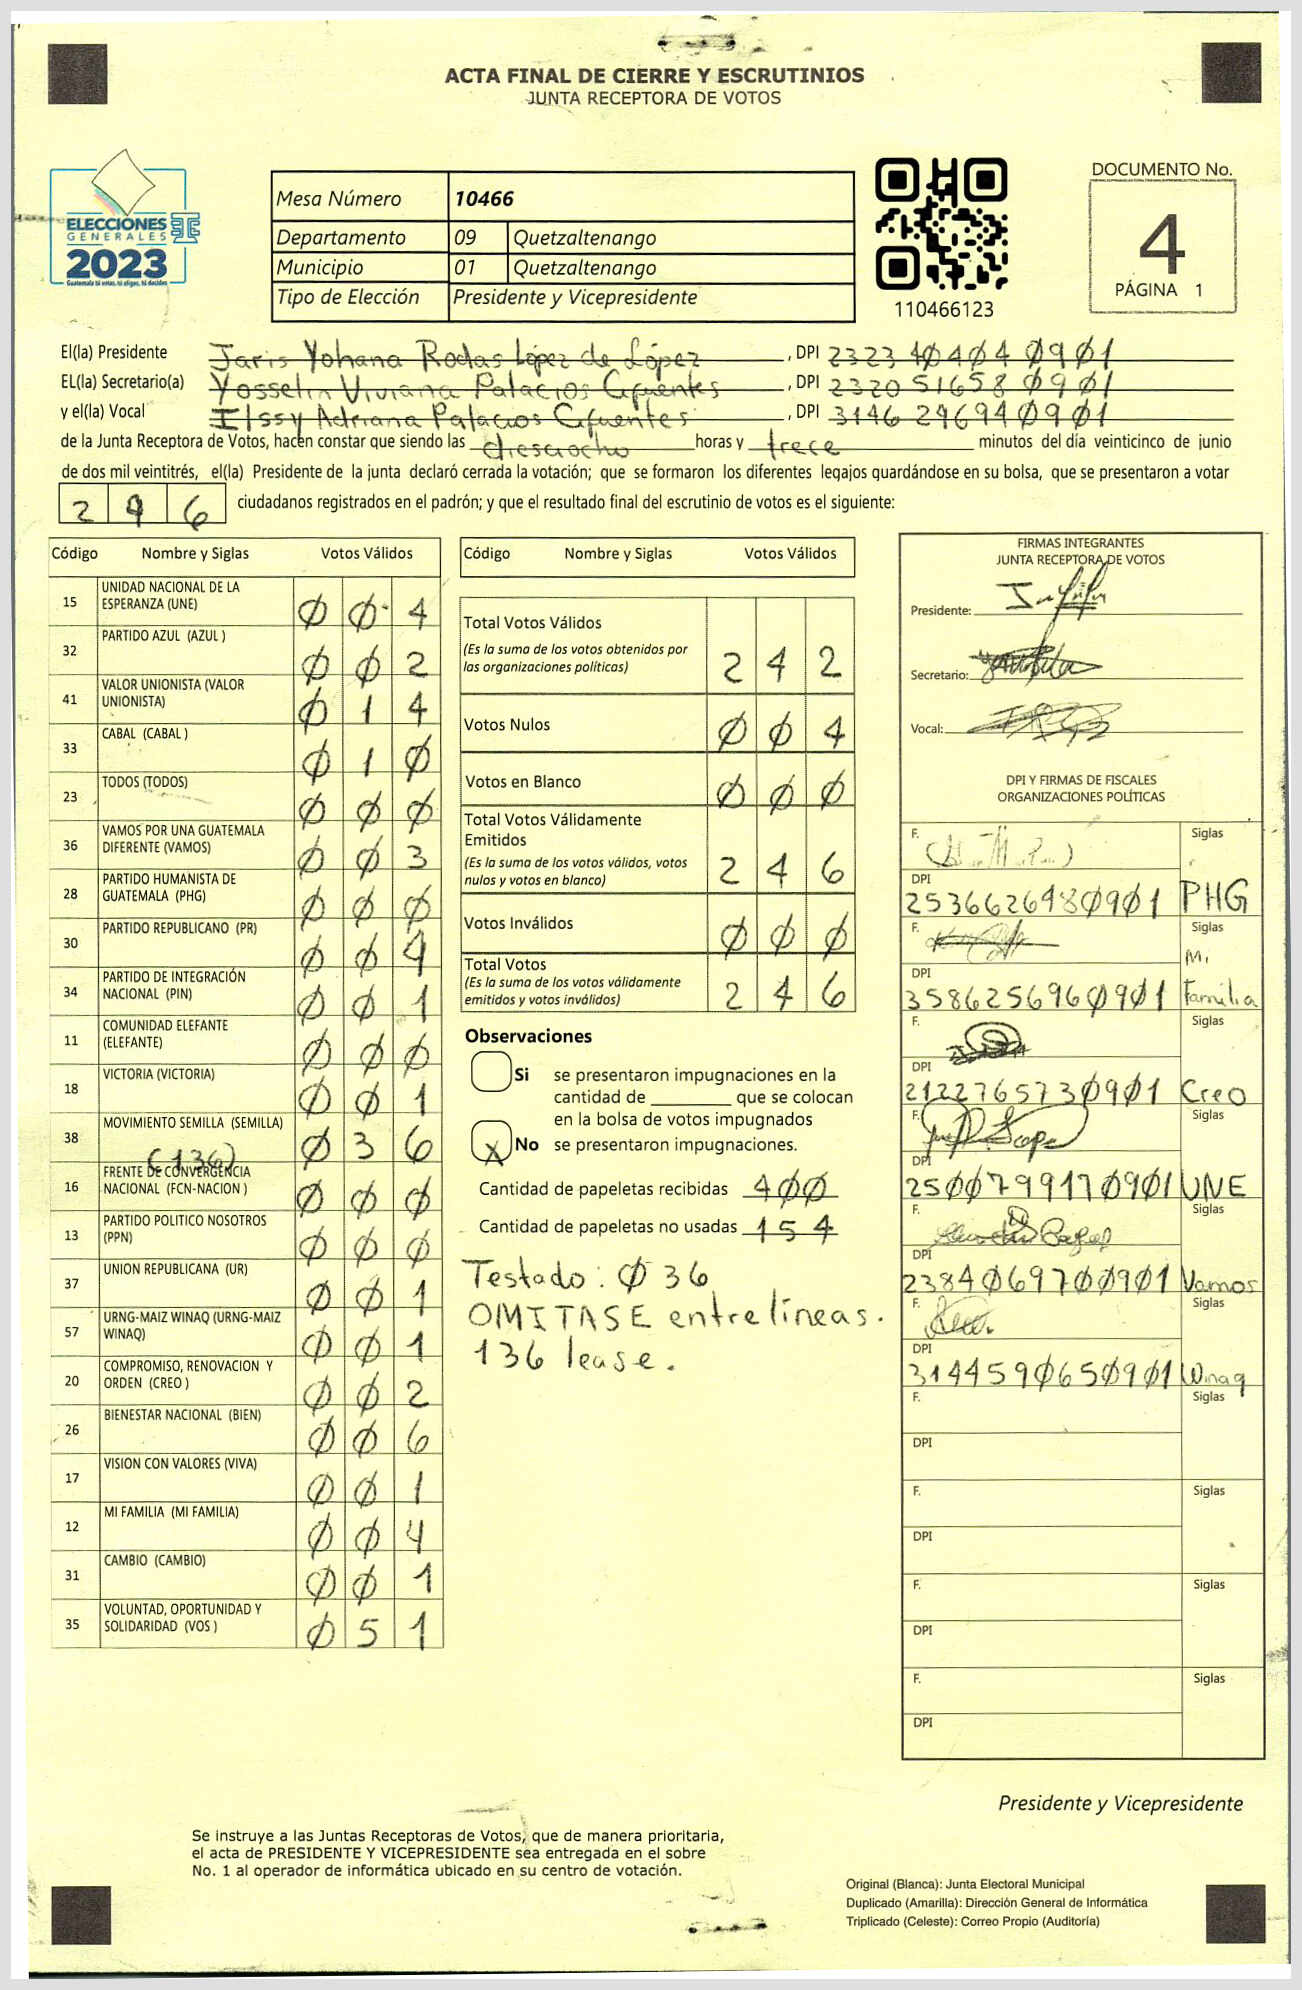 ACTA FINAL DE CIERRE Y ESCRUTINIOS
JUNTA RECEPTORA DE VOTOS
ELECCIONES
GENERALES
2023
Guatemala tú votas, tú eliges, tú decides
Mesa Número 10466
Departamento 09 Quetzaltenango
Municipio 01 Quetzaltenango
Tipo de Elección Presidente y Vicepresidente
110466123
DOCUMENTO No.
4
PÁGINA 1
El(la) Presidente Jaris Yohana Rodas López de López, DPI 2323 40404 0901
EL(la) Secretario(a) Yosselin Viviana Palacios Cifuentes, DPI 2320 51658 0901
y el(la) Vocal Ilssy Adriana Palacios Cifuentes, DPI 3146 24694 0901
de la Junta Receptora de Votos, hacen constar que siendo las diesciocho horas y trece minutos del día veinticinco de junio
de dos mil veintitrés, el(la) Presidente de la junta declaró cerrada la votación; que se formaron los diferentes legajos guardándose en su bolsa, que se presentaron a votar
2 4 6 ciudadanos registrados en el padrón; y que el resultado final del escrutinio de votos es el siguiente:
Código Nombre y Siglas Votos Válidos
15 UNIDAD NACIONAL DE LA ESPERANZA (UNE) 0 0 4
32 PARTIDO AZUL (AZUL ) 0 0 2
41 VALOR UNIONISTA (VALOR UNIONISTA) 0 1 4
33 CABAL (CABAL ) 0 1 0
23 TODOS (TODOS) 0 0 0
36 VAMOS POR UNA GUATEMALA DIFERENTE (VAMOS) 0 0 3
28 PARTIDO HUMANISTA DE GUATEMALA (PHG) 0 0 0
30 PARTIDO REPUBLICANO (PR) 0 0 4
34 PARTIDO DE INTEGRACIÓN NACIONAL (PIN) 0 0 1
11 COMUNIDAD ELEFANTE (ELEFANTE) 0 0 0
18 VICTORIA (VICTORIA) 0 0 1
38 MOVIMIENTO SEMILLA (SEMILLA) 0 3 6
(136)
16 FRENTE DE CONVERGENCIA NACIONAL (FCN-NACION ) 0 0 0
13 PARTIDO POLITICO NOSOTROS (PPN) 0 0 0
37 UNION REPUBLICANA (UR) 0 0 1
57 URNG-MAIZ WINAQ (URNG-MAIZ WINAQ) 0 0 1
20 COMPROMISO, RENOVACION Y ORDEN (CREO ) 0 0 2
26 BIENESTAR NACIONAL (BIEN) 0 0 6
17 VISION CON VALORES (VIVA) 0 0 1
12 MI FAMILIA (MI FAMILIA) 0 0 4
31 CAMBIO (CAMBIO) 0 0 1
35 VOLUNTAD, OPORTUNIDAD Y SOLIDARIDAD (VOS ) 0 5 1
Código Nombre y Siglas Votos Válidos
Total Votos Válidos 2 4 2
(Es la suma de los votos obtenidos por
las organizaciones políticas)
Votos Nulos 0 0 4
Votos en Blanco 0 0 0
Total Votos Válidamente
Emitidos 2 4 6
(Es la suma de los votos válidos, votos
nulos y votos en blanco)
Votos Inválidos 0 0 0
Total Votos 2 4 6
(Es la suma de los votos válidamente
emitidos y votos inválidos)
Observaciones
Si se presentaron impugnaciones en la
cantidad de ________ que se colocan
en la bolsa de votos impugnados
X No se presentaron impugnaciones.
Cantidad de papeletas recibidas 400
Cantidad de papeletas no usadas 154
Testado: 036
OMITASE entre líneas.
136 lease.
FIRMAS INTEGRANTES
JUNTA RECEPTORA DE VOTOS
Presidente:
Secretario:
Vocal:
DPI Y FIRMAS DE FISCALES
ORGANIZACIONES POLÍTICAS
F. Siglas
DPI
2536626480901 PHG
F. Siglas
DPI
3586256960901 Mi Familia
F. Siglas
DPI
2122765730901 Creo
F. Siglas
DPI
2500799170901 UNE
F. Siglas
DPI
2384069700901 Vamos
F. Siglas
DPI
3144590650901 Winaq
F. Siglas
DPI
F. Siglas
DPI
F. Siglas
DPI
F. Siglas
DPI
Presidente y Vicepresidente
Se instruye a las Juntas Receptoras de Votos, que de manera prioritaria,
el acta de PRESIDENTE Y VICEPRESIDENTE sea entregada en el sobre
No. 1 al operador de informática ubicado en su centro de votación.
Original (Blanca): Junta Electoral Municipal
Duplicado (Amarilla): Dirección General de Informática
Triplicado (Celeste): Correo Propio (Auditoría)